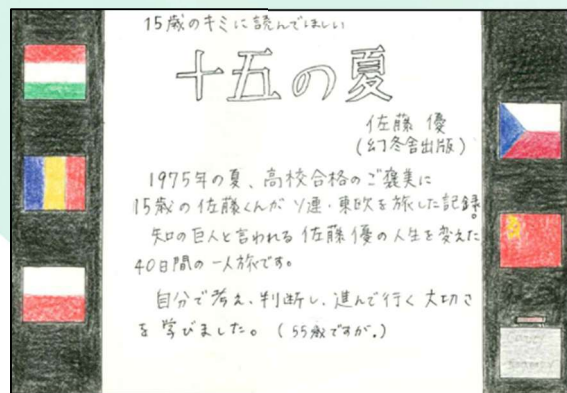 15歳のキミに読んでほしい
十五の夏
佐藤優
(幻冬舎出版)
1975年の夏、高校合格のご褒美に
15歳の佐藤くんがソ連・東欧を旅した記録。
知の巨人と言われる佐藤優の人生を変えた
40日間の一人旅です。
自分で考え、判断し、進んで行く大切さ
を学びました。(55歳ですが。)